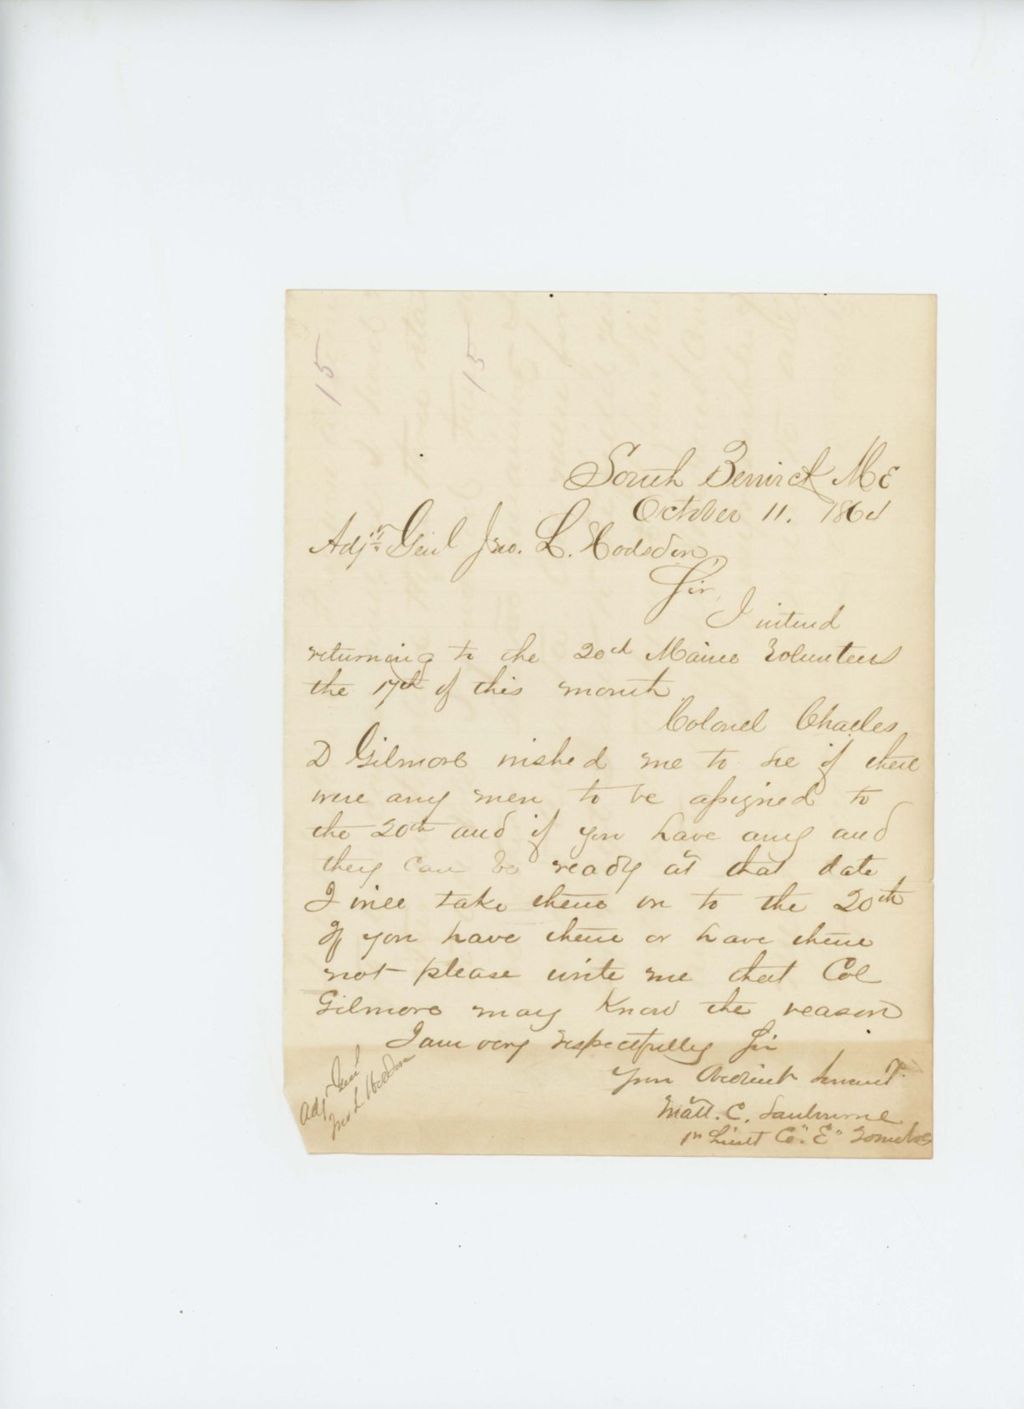 15 15
South Berwick Me
October 11. 1864
Adjt. Genl Jno. L. Hodsdon,
Sir,
I intend
returning to the 20th Maine Volunteers
the 17th of this month
Colonel Charles
D Gilmore wished me to see if there
were any men to be assigned to
the 20th and if you have any and
they can be ready at that date
I will take them on to the 20th
If you have them or have them
not please write me that Col
Gilmore may know the reason
I am very respectfully Sir
Your Obedient Servant.
Matt. C. Sanbourne
1st Lieut Co. "E" 20
Adjt Genl
Jno L Hodsdon